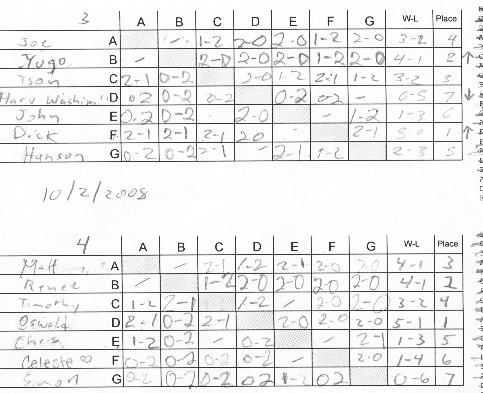 3 A B C D E F G W-L Place
Joe A - 1-2 2-0 2-0 1-2 2-0 3-2 4
Hugo B - 2-0 2-0 2-0 1-2 2-0 4-1 2 ↑
C 2-1 0-2 2-0 1-2 2-1 1-2 3-2 3
D 0-2 0-2 0-2 0-2 0-2 - 0-5 7 ↓
John E 0-2 0-2 - 2-0 - 1-2 1-3 6
Dick F 2-1 2-1 2-1 2-0 2-1 5-0 1 ↑
Hanson G 0-2 0-2 2-1 - 2-1 1-2 2-3 5
10/2/2008
4 A B C D E F G W-L Place
Matt A - 2-1 1-2 2-1 2-0 2-0 4-1 3
Renee B - 1-2 2-0 2-0 2-0 2-0 4-1 2
Timothy C 1-2 2-1 1-2 - 2-0 2-0 3-2 4
Oswald D 2-1 0-2 2-1 2-0 2-0 2-0 5-1 1
Chris E 1-2 0-2 - 0-2 - 2-1 1-3 5
Celeste ♡ F 0-2 0-2 0-2 0-2 - 2-0 1-4 6
Simon G 0-2 0-2 0-2 0 2 1-2 0 2 0-6 7